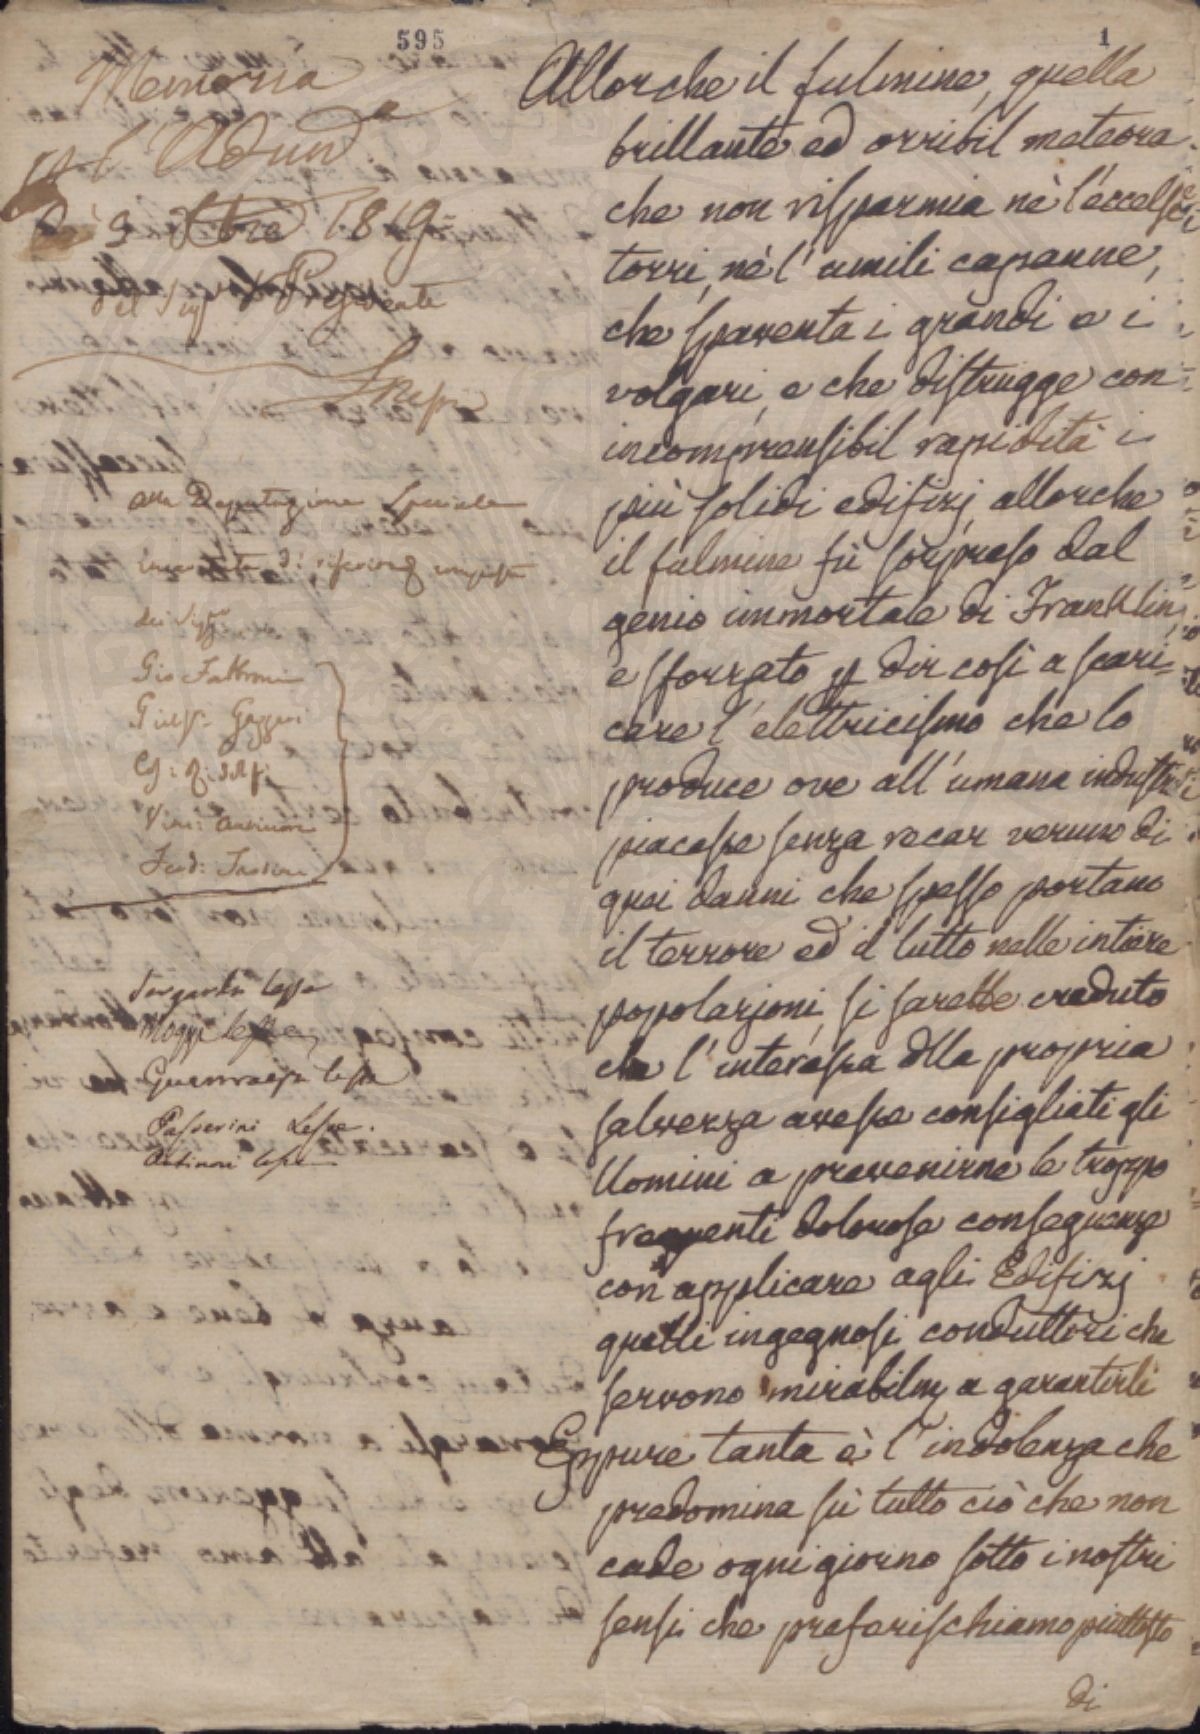 595
1
Memoria
p l'Adun.a
de' 3 8bre 1819
del Sig. Presidente
alla Deputazione Speciale
incaricata di riferirne composta
dei Sigg.ri
Gio Fabbroni
Giusp. Gazzeri
Cos: Ridolfi
Vinc: Antinori
Ferd: Tartini
Targioni lesse
Magge lesse
Guerrazzi lesse
Passerini Lesse.
Antinori lesse
Allorche il fulmine, quella
brillante ed orribil meteora
che non risparmia nè l'eccelse
torri, nè l'umili capanne,
che spaventa i grandi e i
volgari, e che distrugge con
incomprensibil rapidità i
più solidi edifizj, allorche
il fulmine fù sorpreso dal
genio immortale di Franklin,
e sforzato p dir così a scari=
care l'elettricismo che lo
produce ove all'umana industria
piacesse senza recar veruno di
quei danni che spesso portano
il terrore ed il lutto nelle intiere
popolazioni, si sarebbe creduto
che l'interesse dlla propria
salvezza avesse consigliati gli
Uomini a prevenirne le troppo
frequenti dolorose conseguenze
con applicare agli Edifizj
quelli ingegnosi conduttori che
servono mirabilm a garantirli
Eppure tanta è l'indolenza che
predomina sù tutto ciò che non
cade ogni giorno sotto i nostri
sensi che preferischiamo piuttosto
di